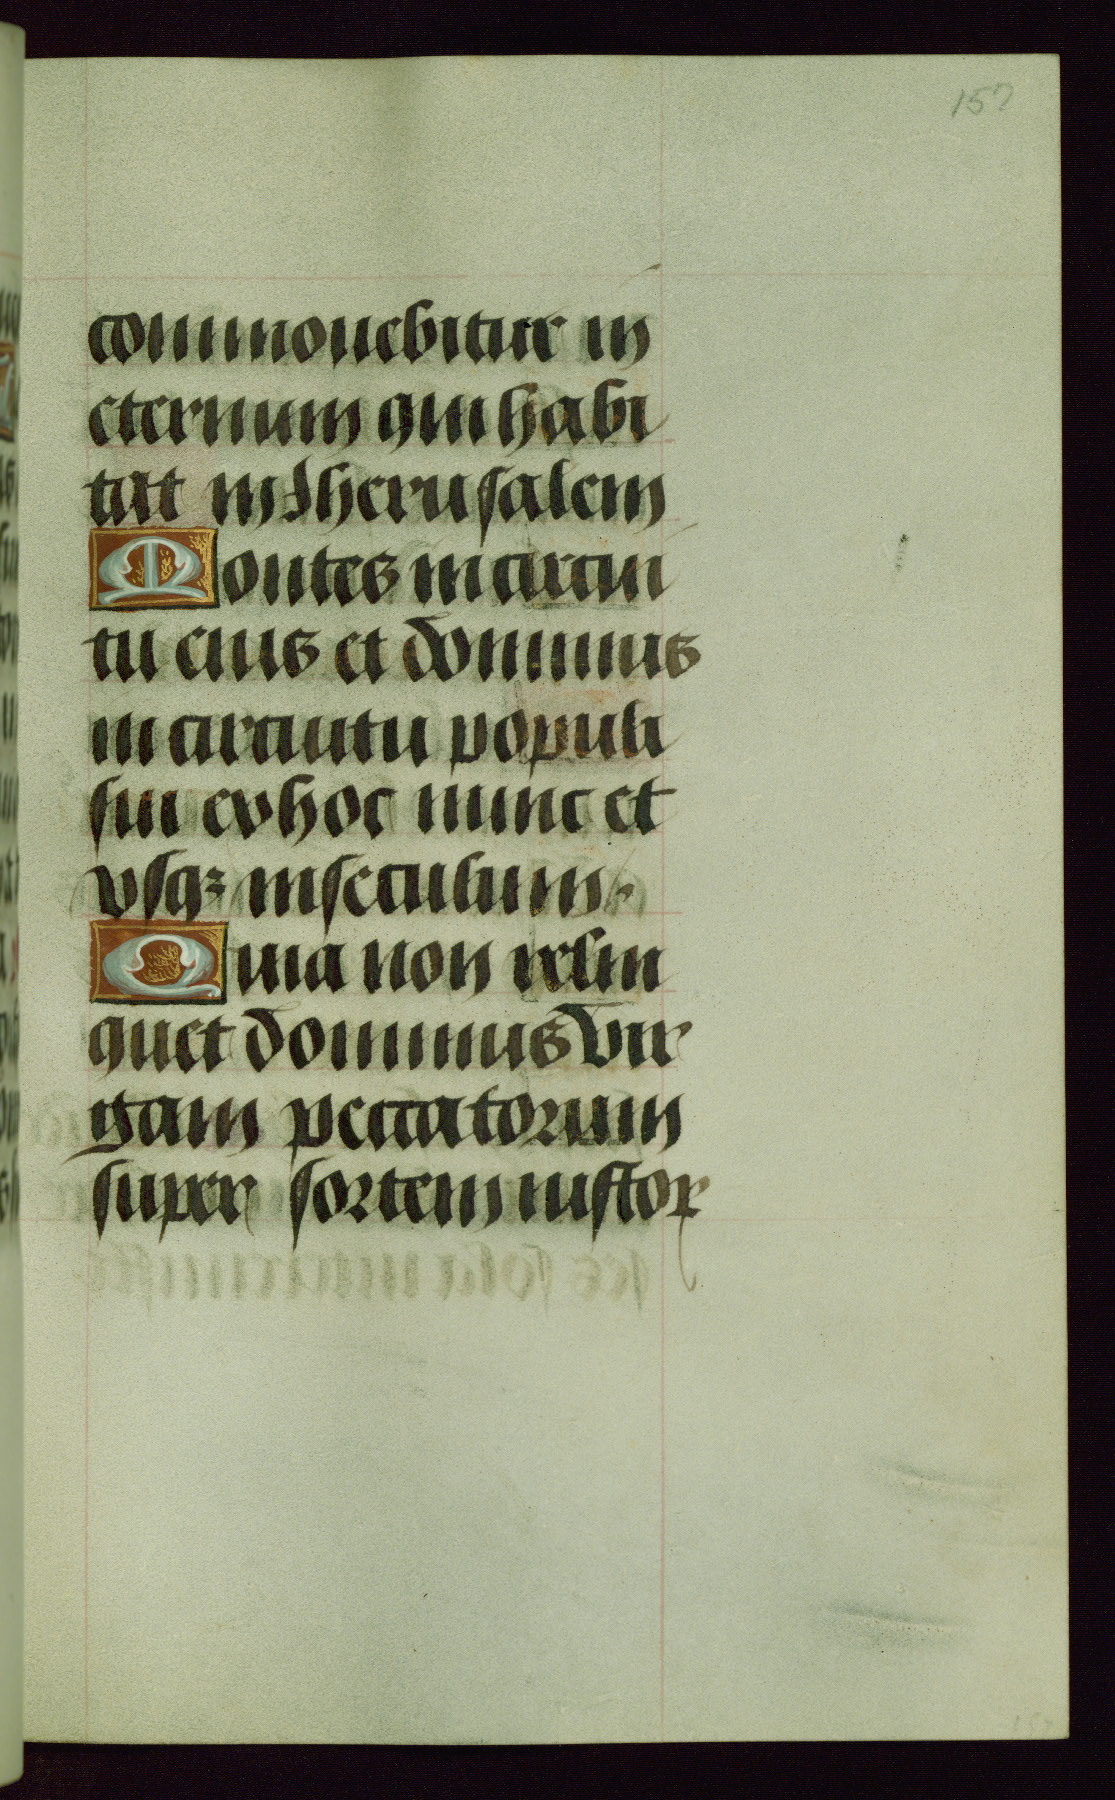 157
commouebitur in
eternum qui habi
tat in Jherusalem
Montes in circui
tu eius et dominus
in circuitu populi
sui ex hoc nunc et
vsqꝫ in seculum.
Quia non relin
quet dominus vir
gam peccatorum
super sortem iustoꝝ